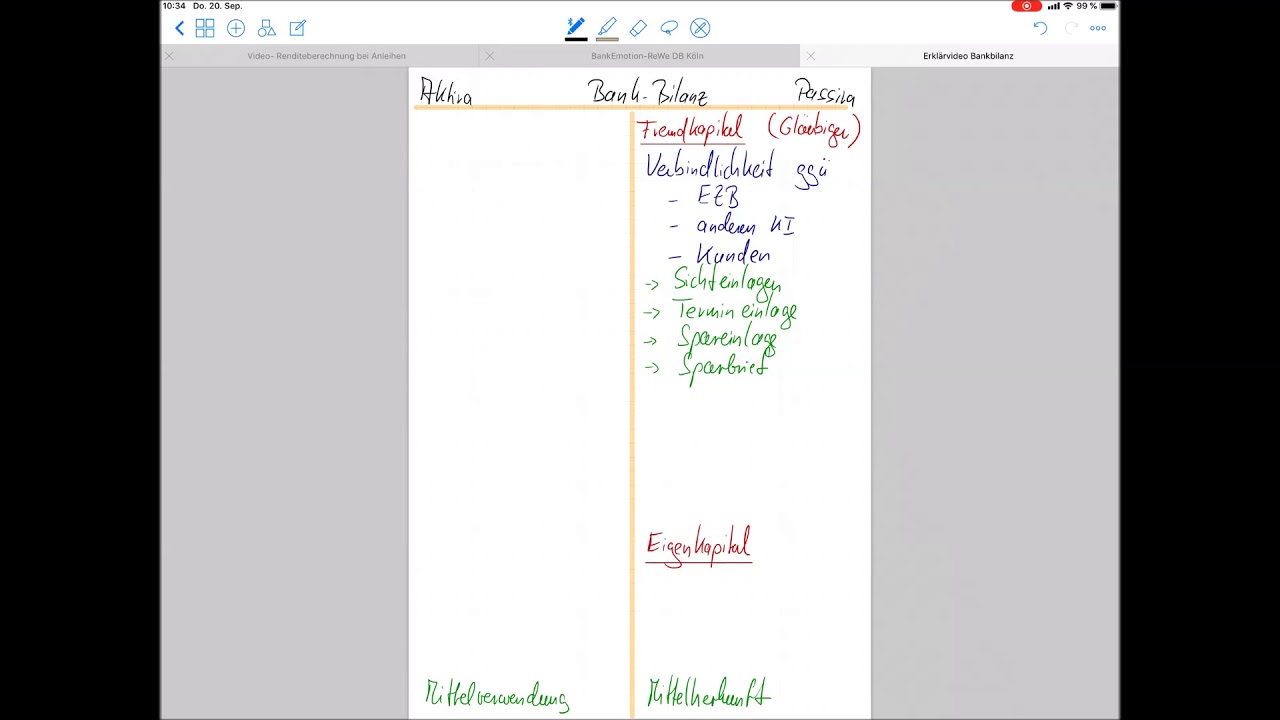 10:34 Do. 20. Sep.
99 %
Video- Renditeberechnung bei Anleihen
BankEmotion-ReWe DB Köln
Erklärvideo Bankbilanz
Aktiva Bank-Bilanz Passiva
Fremdkapital (Gläubiger)
Verbindlichkeit ggü
- EZB
- anderen KI
- Kunden
-> Sichteinlagen
-> Termineinlage
-> Spareinlage
-> Sparbrief
Eigenkapital
Mittelverwendung Mittelherkunft